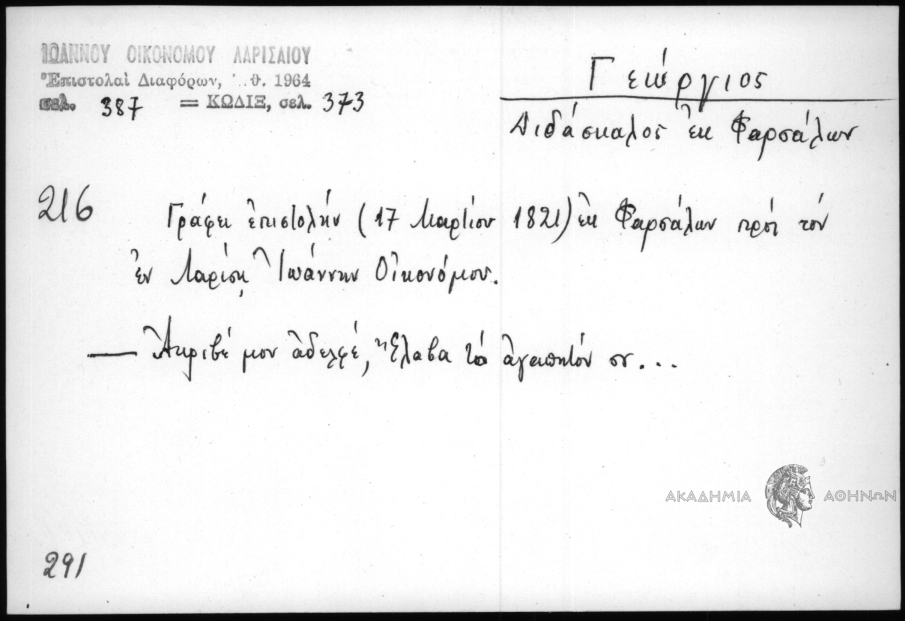 ΙΩΑΝΝΟΥ ΟΙΚΟΝΟΜΟΥ ΛΑΡΙΣΑΙΟΥ
Ἐπιστολαὶ Διαφόρων, θ. 1964
σελ. 387 = ΚΩΔΙΞ, σελ. 373
Γεώργιος
Διδάσκαλος ἐκ Φαρσάλων
216
Γράφει ἐπιστολήν (17 Μαρτίου 1821) ἐκ Φαρσάλων πρὸς τόν
ἐν Λαρίσῃ Ἰωάννην Οἰκονόμου.
— Ἀκριβέ μου ἀδελφέ, Ἔλαβα τό ἀγαπητόν σ...
ΑΚΑΔΗΜΙΑ ΑΘΗΝΩΝ
291